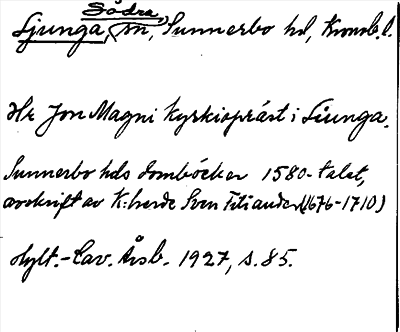 Södra,
Ljunga, sn, Sunnerbo hd, Kronob. l.
Hr Jon Magni kyrkiopräst i Liunga.
Sunnerbo hds domböcker 1580-talet,
avskrift av K:herde Sven Fitiander (1676-1710)
Hylt.-Cav. Årsb. 1927, s. 85.